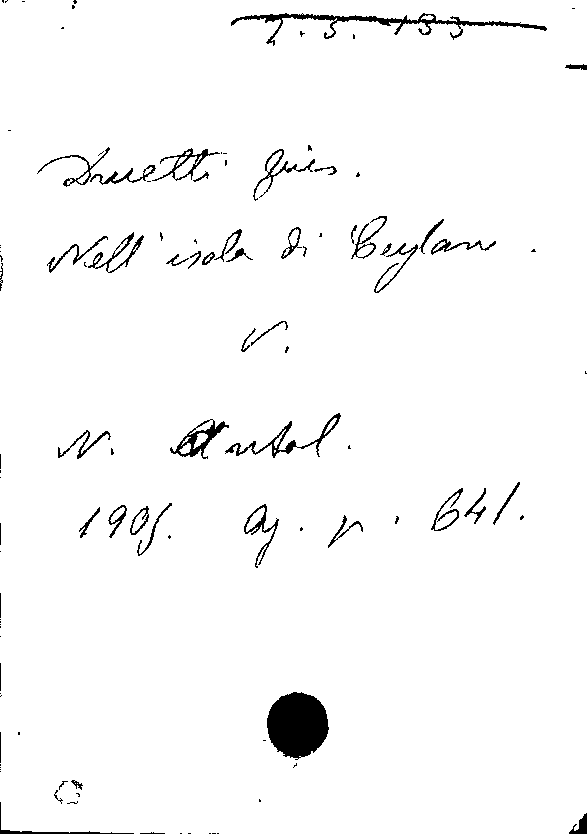 2. 5. 133
Druetti Gius.
Nell' isola di Ceylan.
V.
N. Antol.
1905. Ag. p. 641.